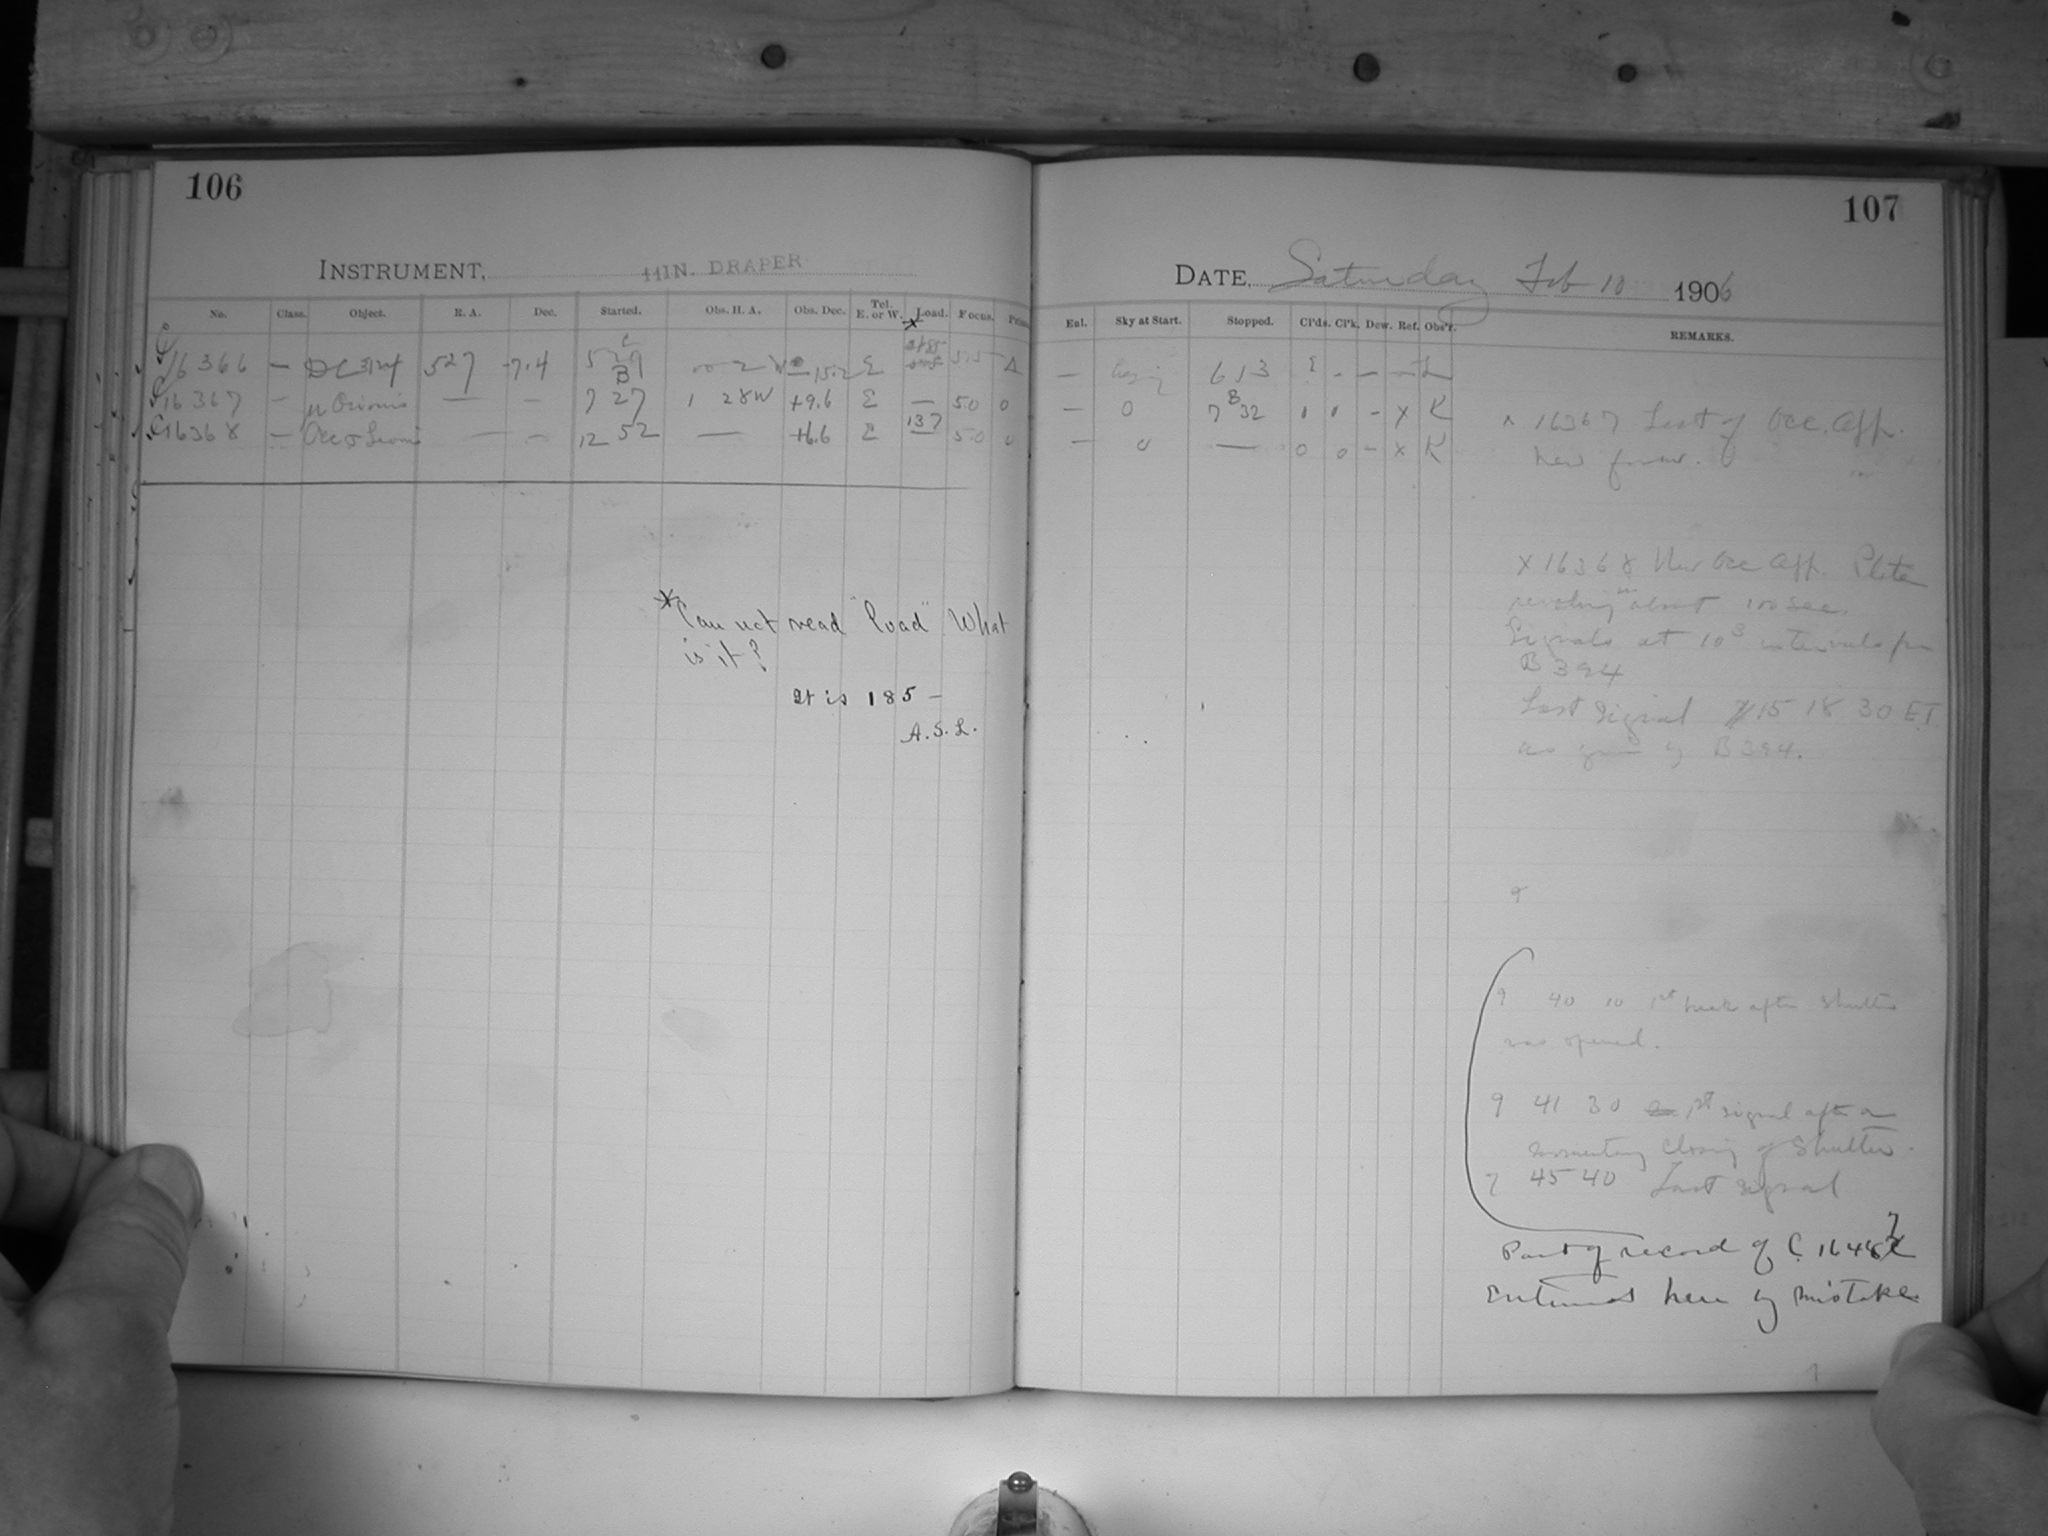 106
INSTRUMENT, 11IN. DRAPER
No. Class. Object. R. A. Dec. Started. Obs. H. A. Obs. Dec. Tel. E. or W. Load. Focus.
16366 — 527 -7.4 E
16367 — μ Orionis — — 7 27 1 28W +9.6 E — 5.0 0
C16368 — Occ σ Leonis — — 12 52 — +6.6 E 137 5.0 0
*Can not read "load". What
is it?
It is 185 —
A.S.L.
107
DATE, Saturday Feb 10 1906
Enl. Sky at Start. Stopped. Cl'ds. Cl'k. Dew. Ref. Obs'r. REMARKS.
— 6 13 — — L
— 0 7 32 1 1 - x K
— 0 — 0 0 - x K
x 16367 Test of Occ. App.
new form.
x 16368 New Occ App. Plate
about 100 sec.
Signals at 10 s intervals fm
B 394
Last signal 15 18 30 E.T.
as given by B 394.
9
9 40 10 1st break after shutter
was opened.
9 41 30 1st signal after a
momentary closing of shutter.
45 40 Last signal
Part of record of C 1648
Entered here by mistake.